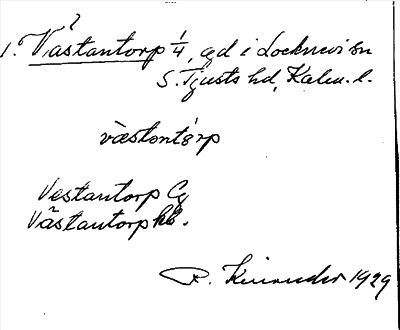 ?
1. Västantorp 1/4, gd i Locknevi sn
S. Tjusts hd, Kalm. l.
västontòrp
Vestantorp Cg
Västantorp hb.
R. Kinander 1929